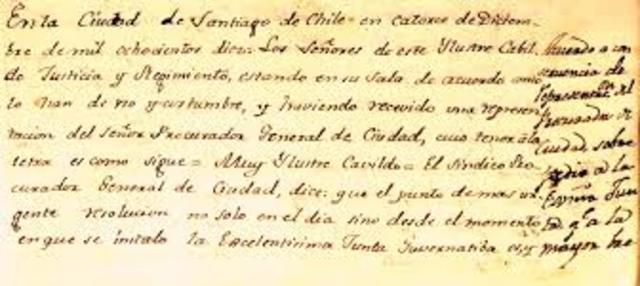 En la Ciudad de Santiago de Chile en catorce de Diciem-
bre de mil ochocientos diez: Los Señores de este Ylustre Cabil-
do Justicia y Regimiento, estando en su sala de acuerdo como
lo han de uso y costumbre, y haviendo recevido una represen-
tacion del Señor Procurador General de Ciudad, cuio tenor a la
letra es como sigue = Muy Ylustre Cavildo = El Sindico Pro-
curador General de Ciudad, dice: que el punto de mas ur-
gente resolucion no solo en el dia sino desde el momento
en que se instalo la Excelentisima Junta Guvernatiba es, y
Acuerdo a con
sequencia de
representon. del
Procurador de
Ciudad, sobre
a la
Exma Jun
ta qe. a la
mayor bre